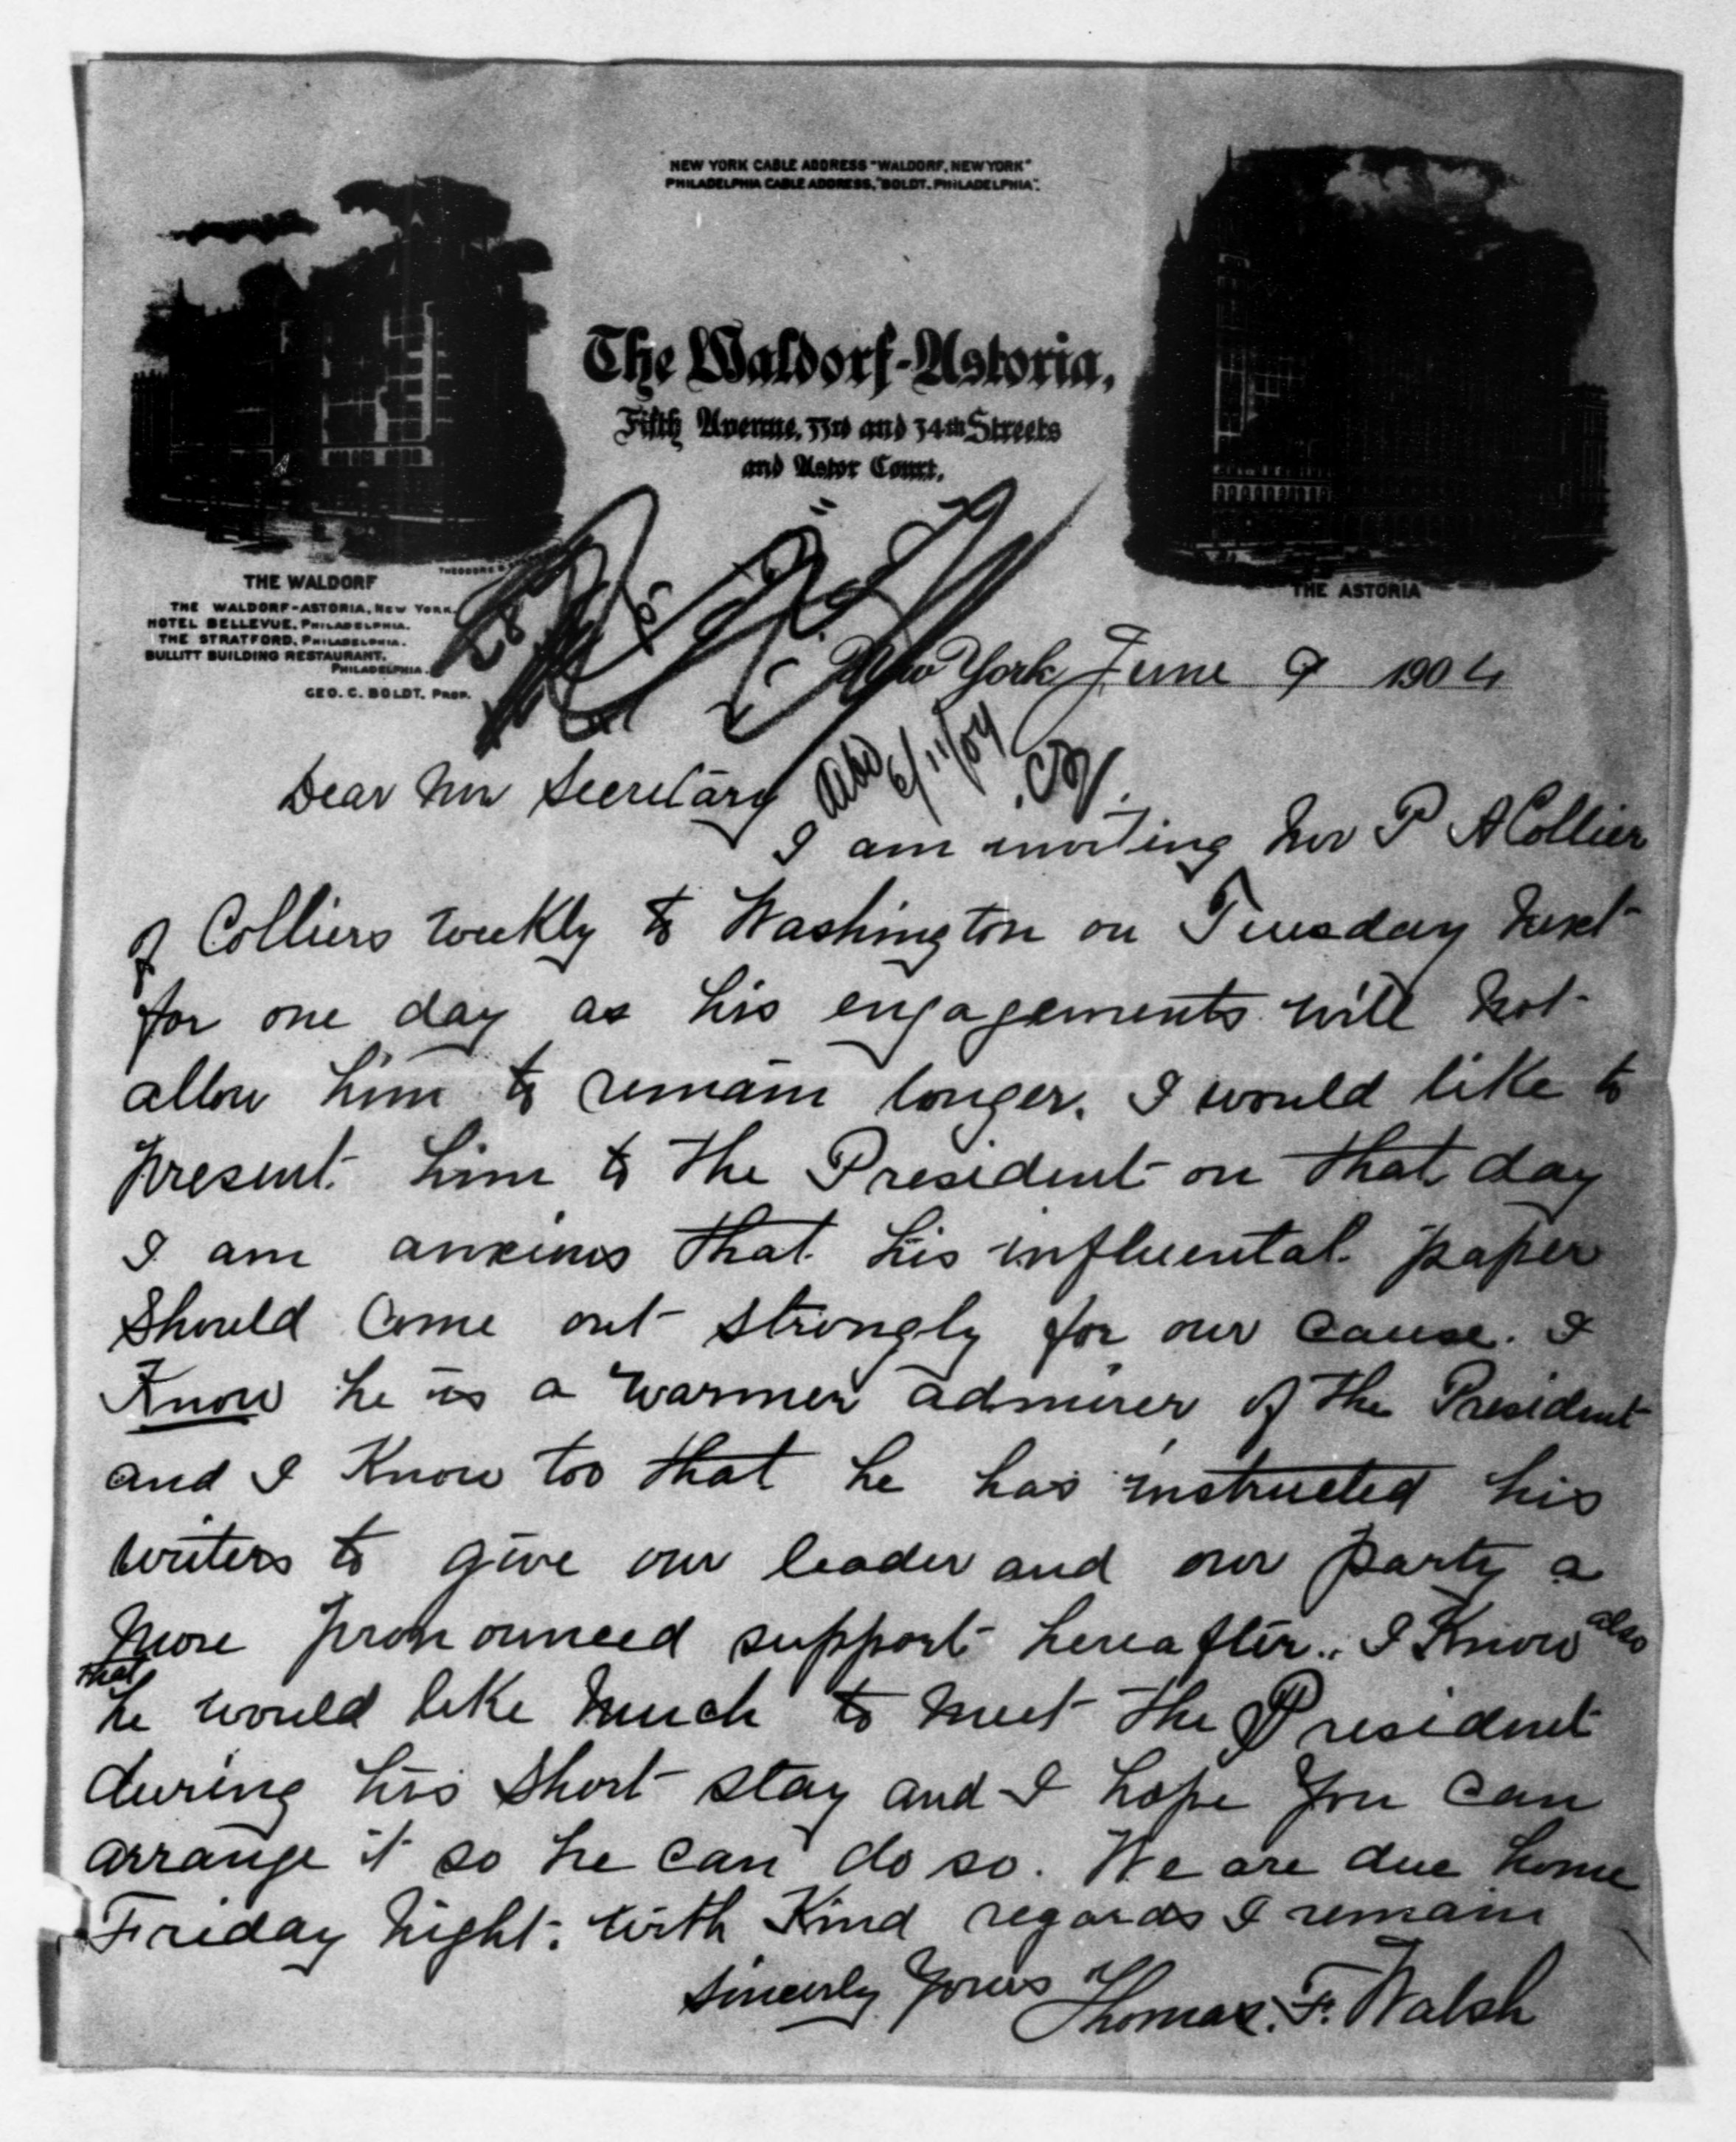 NEW YORK CABLE ADDRESS "WALDORF, NEW YORK"
PHILADELPHIA CABLE ADDRESS, "BOLDT, PHILADELPHIA".
The Waldorf-Astoria,
Fifth Avenue, 33rd and 34th Streets
and Astor Court.
THE WALDORF
THE WALDORF-ASTORIA, NEW YORK.
HOTEL BELLEVUE, PHILADELPHIA.
THE STRATFORD, PHILADELPHIA.
BULLITT BUILDING RESTAURANT,
PHILADELPHIA.
GEO. C. BOLDT, PROP.
THE ASTORIA
New York June 9 1904
6/11/04
Dear Mr Secretary
I am inviting Mr P A Collier
of Colliers weekly to Washington on Tuesday next
for one day as his engagements will not
allow him to remain longer. I would like to
present him to the President on that day
I am anxious that his influental paper
should come out strongly for our cause. I
Know he is a warmer admirer of the President
and I Know too that he has instructed his
writers to give our leader and our party a
more pronounced support hereafter. I Know also
that he would like much to meet the President
during his short stay and I hope you can
arrange it so he can do so. We are due home
Friday night. With Kind regards I remain
Sincerly Yours
Thomas. F. Walsh